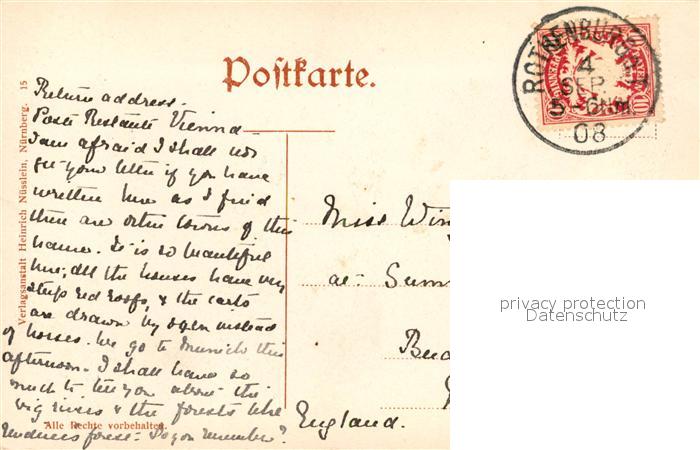 Postkarte.
ROTHENBURG
4
SEP.
5-6NM
08
BAYERN
10
Return address.
Poste Restante Vienna
I am afraid I shall not
get your letter if you have
written here as I find
there are other towns of this
name. It is so beautiful
here, all the houses have very
steep red roofs, & the carts
are drawn by oxen instead
of horses. We go to Munich this
afternoon. I shall have so
much to tell you about the
big rivers & the forests like
forest. Do you remember?
Miss Win
at Sum
Bu
England.
Verlagsanstalt Heinrich Nüsslein, Nürnberg. 15
Alle Rechte vorbehalten.
privacy protection
Datenschutz